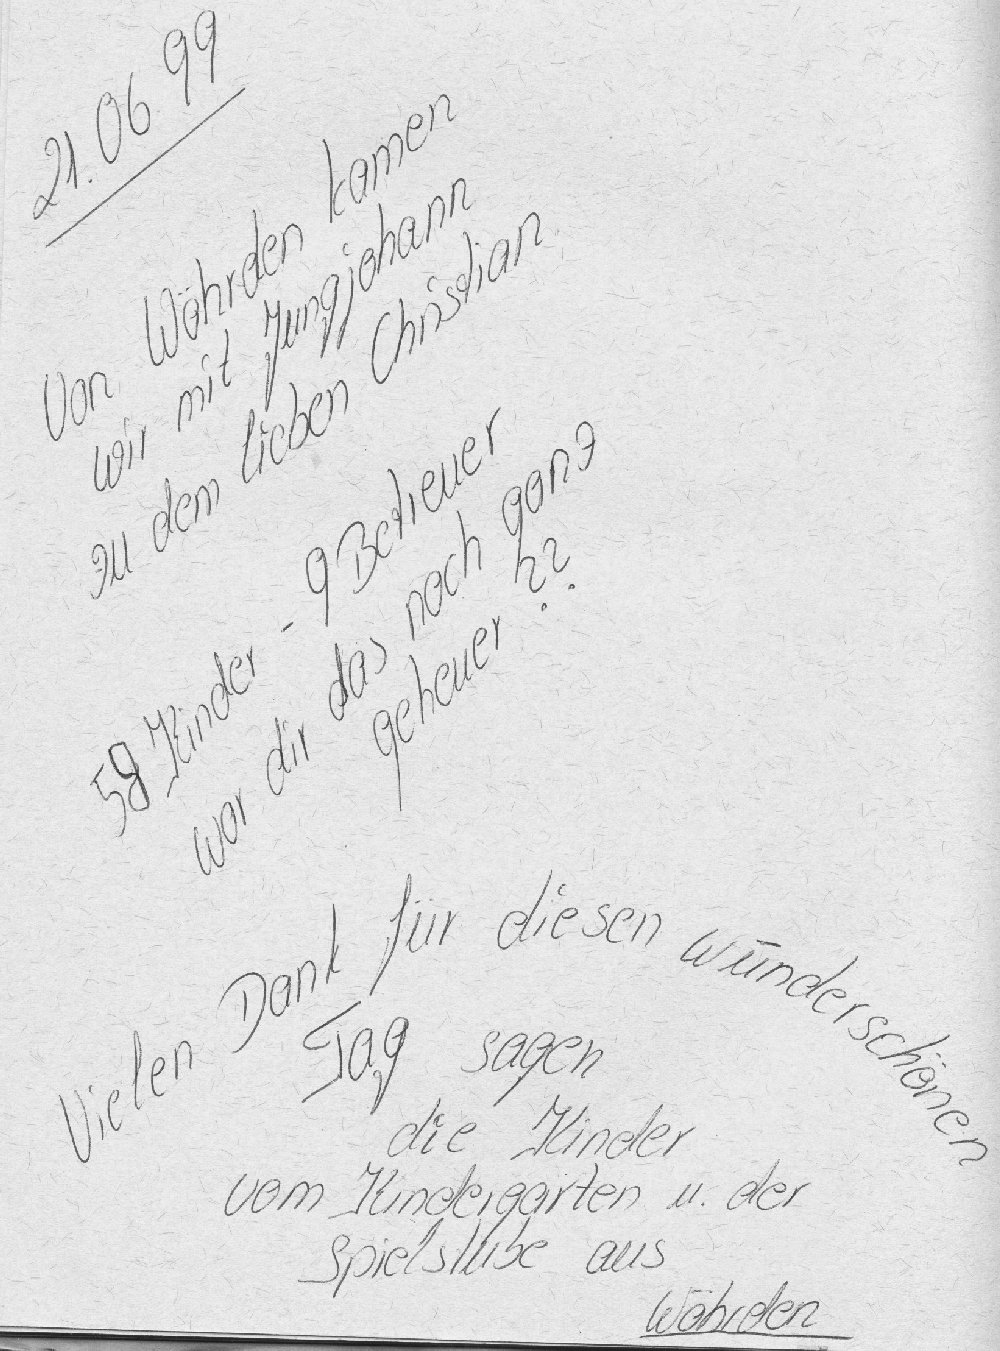 21.06.99
Von Wöhrden kamen
wir mit Jungjohann
zu dem lieben Christian
58 Kinder - 9 Betreuer
war dir das noch ganz
geheuer ??
Vielen Dank für diesen wunderschönen
Tag sagen
die Kinder
vom Kindergarten u. der
Spielstube aus
Wöhrden